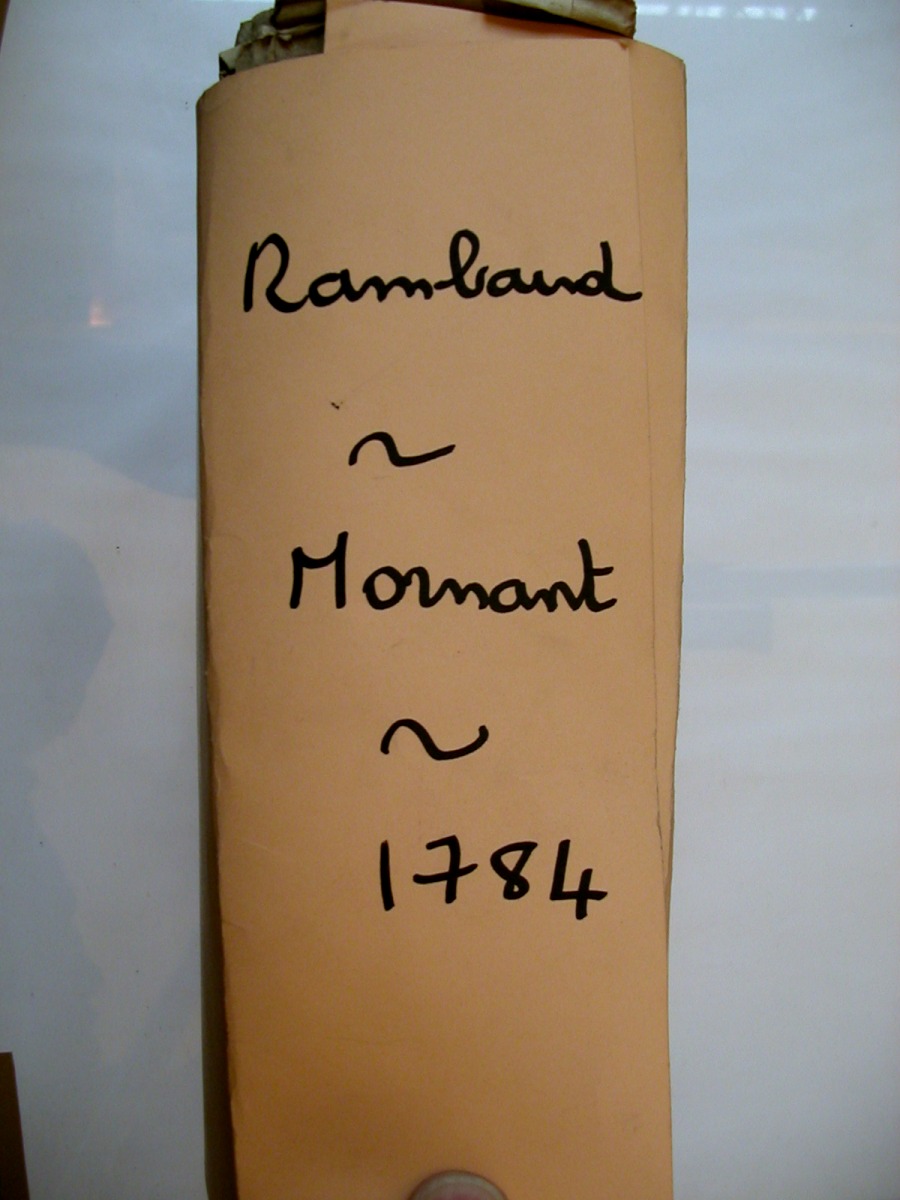 Rambaud
~
Mornant
~
1784